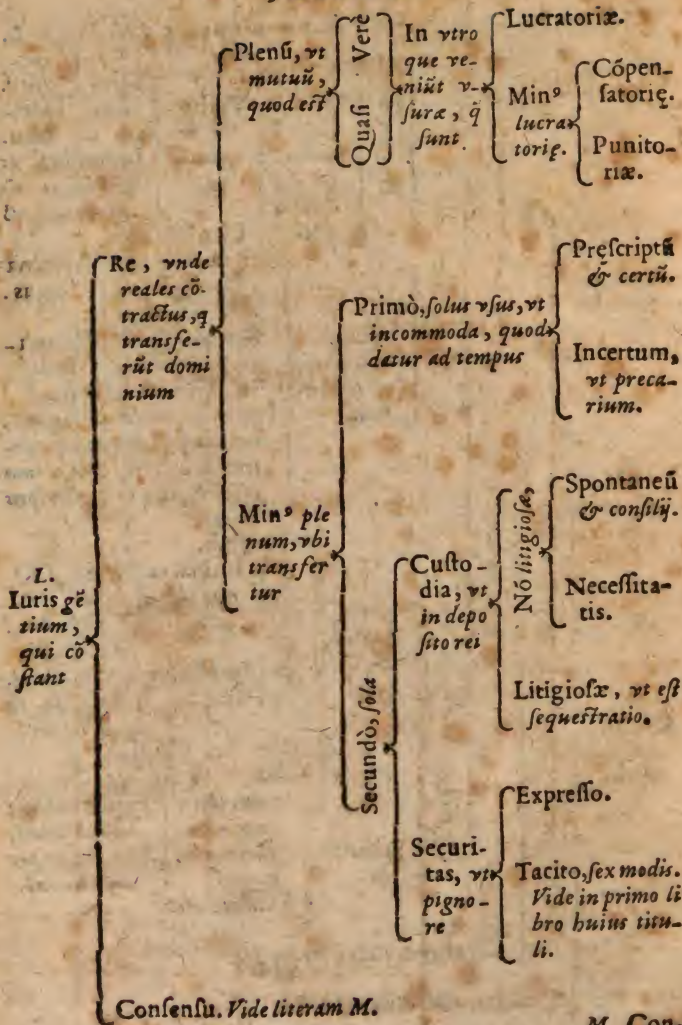 L.
Iuris gẽ
tium,
qui cõ
ſtant
Re, vnde
reales cõ-
tractus, q
transfe-
rũt domi
nium
Plenũ, vt
mutuũ,
quod eſt
Verè
Quaſi
In vtro
que ve-
niũt v-
ſuræ, q̃
ſunt.
Lucratoriæ.
Minꝰ
lucra
torię.
Cópen-
ſatorię.
Punito-
riæ.
Minꝰ ple
num, vbi
transfer
tur
Primò, ſolus vſus, vt
incommoda, quod
datur ad tempus
Pręſcriptũ
& certũ.
Incertum,
vt preca-
rium.
Secundò, ſola
Cuſto-
dia, vt
in depo
ſito rei
Nó litigioſæ,
Spontaneũ
& conſilij.
Neceſſita-
tis.
Litigioſæ, vt eſt
ſequeſtratio.
Securi-
tas, vt
pigno-
re
Expreſſo.
Tacito, ſex modis.
Vide in primo li
bro huius titu-
li.
Conſenſu. Vide literam M.
M. Con-